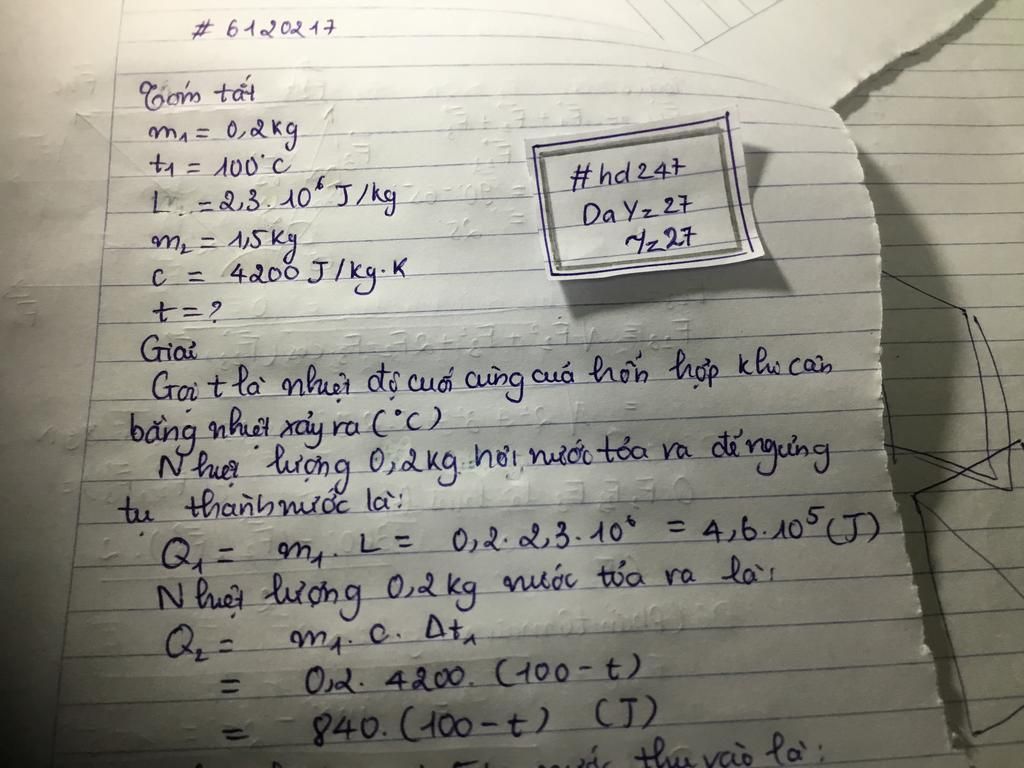 # 6120217
Tóm tắt
m₁ = 0,2kg
t₁ = 100°C
L = 2,3.10⁶ J/kg
m₂ = 1,5kg
c = 4200 J/kg.K
t = ?
Giải
Gọi t là nhiệt độ cuối cùng cuả hỗn hợp khi cân
bằng nhiệt xảy ra (°C)
Nhiệt lượng 0,2kg hơi nước tỏa ra để ngưng
tụ thành nước là:
Q₁ = m₁.L = 0,2.2,3.10⁶ = 4,6.10⁵ (J)
Nhiệt lượng 0,2kg nước tỏa ra là:
Q₂ = m₁.c.Δt₁
= 0,2.4200.(100-t)
= 840.(100-t) (J)
nước thu vào là:
#hd247
DaY=27